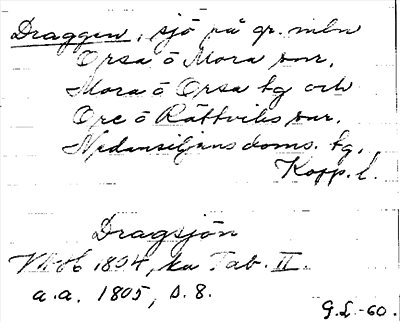 Draggen, sjö på gr. mln
Orsa o Mora snr,
Mora o Orsa tg och
Ore o Rättviks snr.
Nedansiljans doms. tg,
Kopp. l.
Dragsjön
1804, ka Tab. II.
a.a. 1805, s. 8.
G.L. -60.